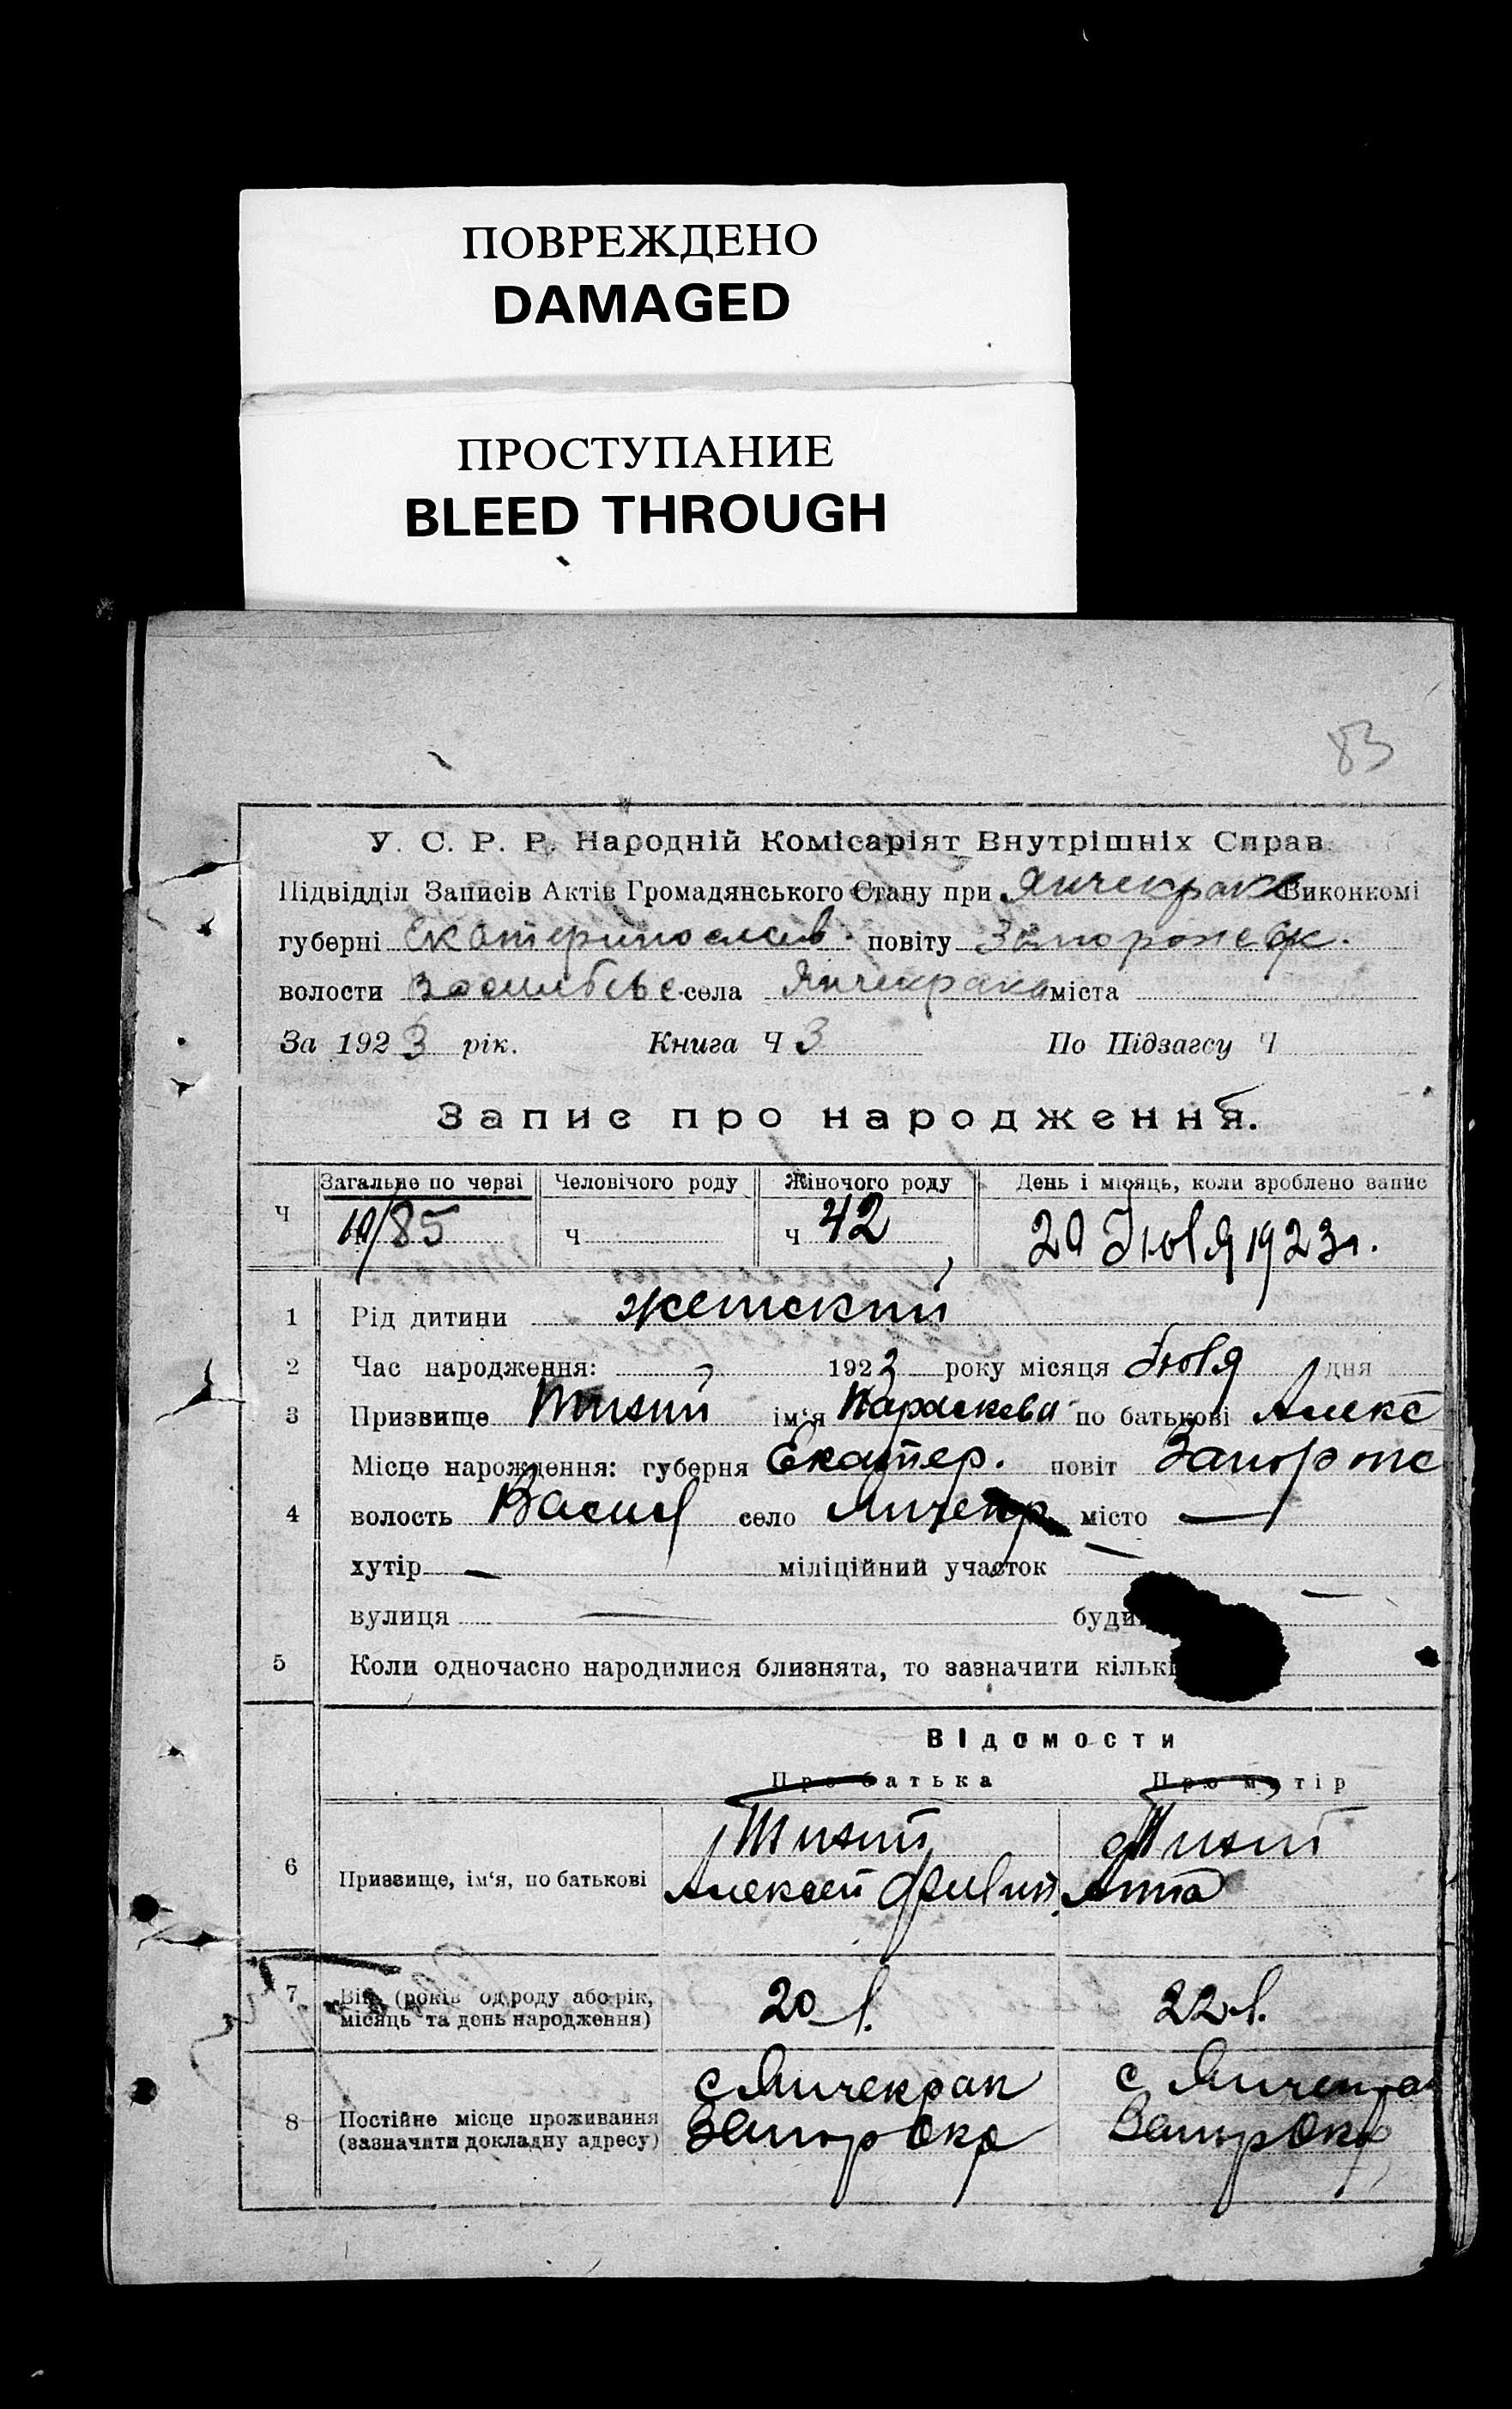 ПОВРЕЖДЕНО
DAMAGED
ПРОСТУПАНИЕ
BLEED THROUGH
83
У. С. Р. Р. Народній Комісаріят Внутрішніх Справ.
Підвідділ Записів Актів Громадянського Стану при Янчекрак Виконкомі
губерні Екатеринослав. повіту Запорожск.
волости села Янчекрака міста
За 1923 рік. Книга Ч 3 По Підзагсу Ч
Запис про народження.
Загальне по черзі Человічого роду Жіночого роду День і місяць, коли зроблено запис
Ч /85 Ч Ч 42 20 Июля 1923 г.
1 Рід дитини женский
2 Час народження: 1923 року місяця Июля дня
3 Призвище Тихий ім'я Параскева по батькові Алекс
Місце нарождення: губерня Екатер. повіт Запорож
4 волость Васил село Янчекр місто —
хутір — міліційний участок —
вулиця — буди —
5 Коли одночасно народилися близнята, то зазначити кількі
Відомости
Про батька Про матір
Тихий Тихий
6 Призвище, ім'я, по батькові Алексей Анна
7 Вік (років од роду або рік, 20 л. 22 л.
місяць та день народження)
с Янчекрак с Янчекрак
8 Постійне місце проживання Запор Окр Запор Окр
(зазначити докладну адресу)